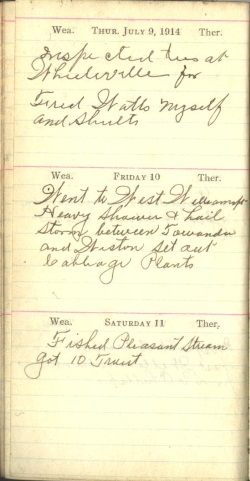 Wea. THUR. JULY 9, 1914 Ther.
Inspected trees at
Wheelerville for
Fred Watts Myself
and Shults
Wea. FRIDAY 10 Ther.
Went to West Williamsport
Heavy Shower & hail
Storm between Towanda
and Wiston Set out
Cabbage Plants
Wea. SATURDAY 11 Ther.
Fished Pleasant Stream
got 10 Trout